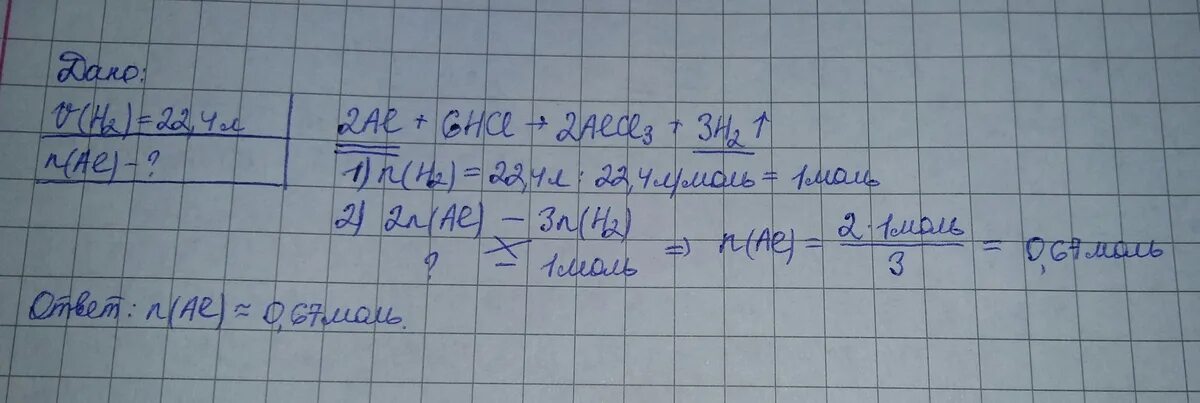 Дано:
V(H₂) = 22,4л
n(Al) - ?
2Al + 6HCl → 2AlCl₃ + 3H₂↑
1) n(H₂) = 22,4л : 22,4л/моль = 1моль
2) 2n(Al) — 3n(H₂)
? — 1моль
=> n(Al) = 2·1моль / 3 = 0,67моль
Ответ: n(Al) ≈ 0,67моль.